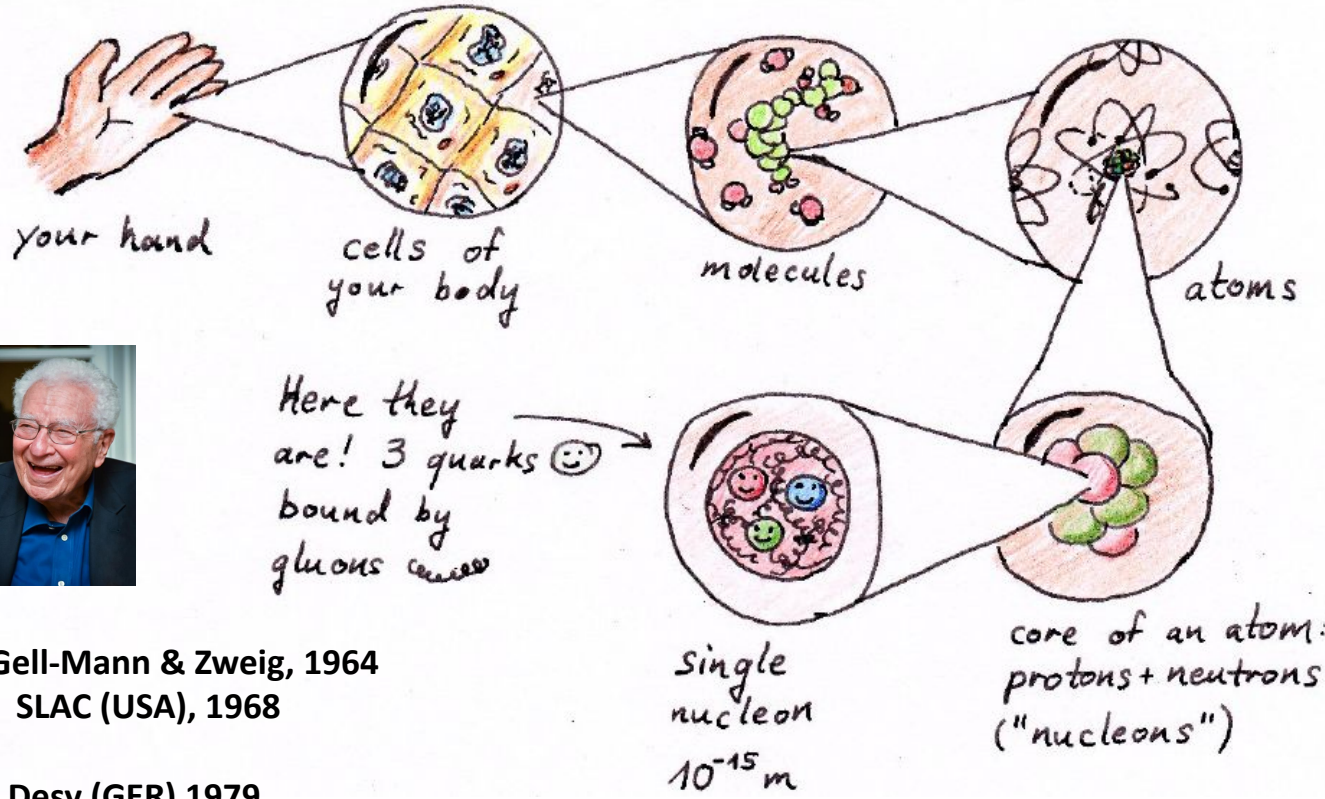 your hand
cells of
your body
molecules
atoms
Here they
are! 3 quarks
bound by
gluons
single
nucleon
10⁻¹⁵ m
core of an atom:
protons + neutrons
("nucleons")
Gell-Mann & Zweig, 1964
SLAC (USA), 1968
Desy (GER) 1979